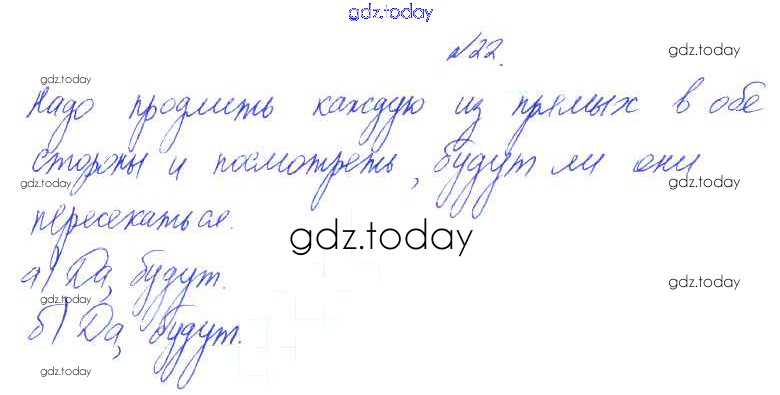 gdz.today
№22.
gdz.today
gdz.today
Надо продлить каждую из прямых в обе
стороны и посмотреть, будут ли они
gdz.today
gdz.today
пересекаться.
gdz.today
а) Да, будут.
gdz.today
gdz.today
б) Да, будут.
gdz.today
gdz.today